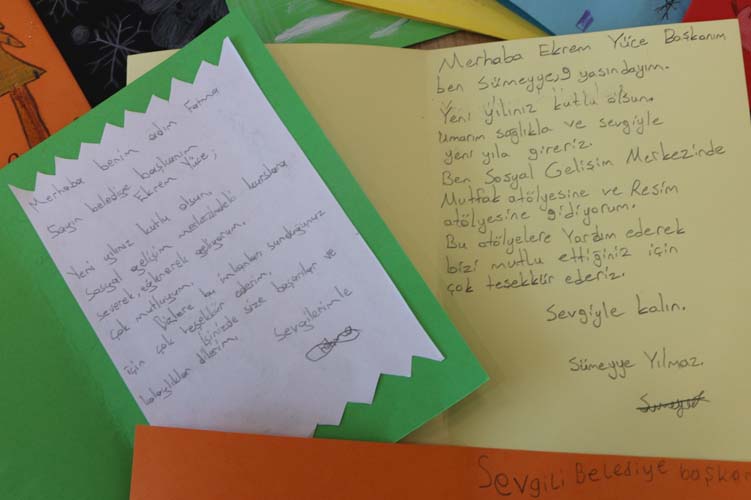 Merhaba benim adım Fatma
Sayın belediye başkanım
Ekrem Yüce,
Yeni yılınız kutlu olsun.
Sosyal gelişim merkezindeki kurslara
severek, eğlenerek geliyorum.
Çok mutluyum.
Bizlere bu imkanları sunduğunuz
için çok teşekkür ederim.
İşinizde size başarılar ve
kolaylıklar dilerim.
Sevgilerimle
Merhaba Ekrem Yüce Başkanım
ben Sümeyye, 9 yaşındayım.
Yeni yılınız kutlu olsun.
Umarım sağlıkla ve sevgiyle
yeni yıla gireriz.
Ben Sosyal Gelişim Merkezinde
Mutfak atölyesine ve Resim
atölyesine gidiyorum.
Bu atölyelere Yardım ederek
bizi mutlu ettiğiniz için
çok teşekkür ederiz.
Sevgiyle kalın.
Sümeyye Yılmaz.
Sümeyye
Sevgili Belediye başkan